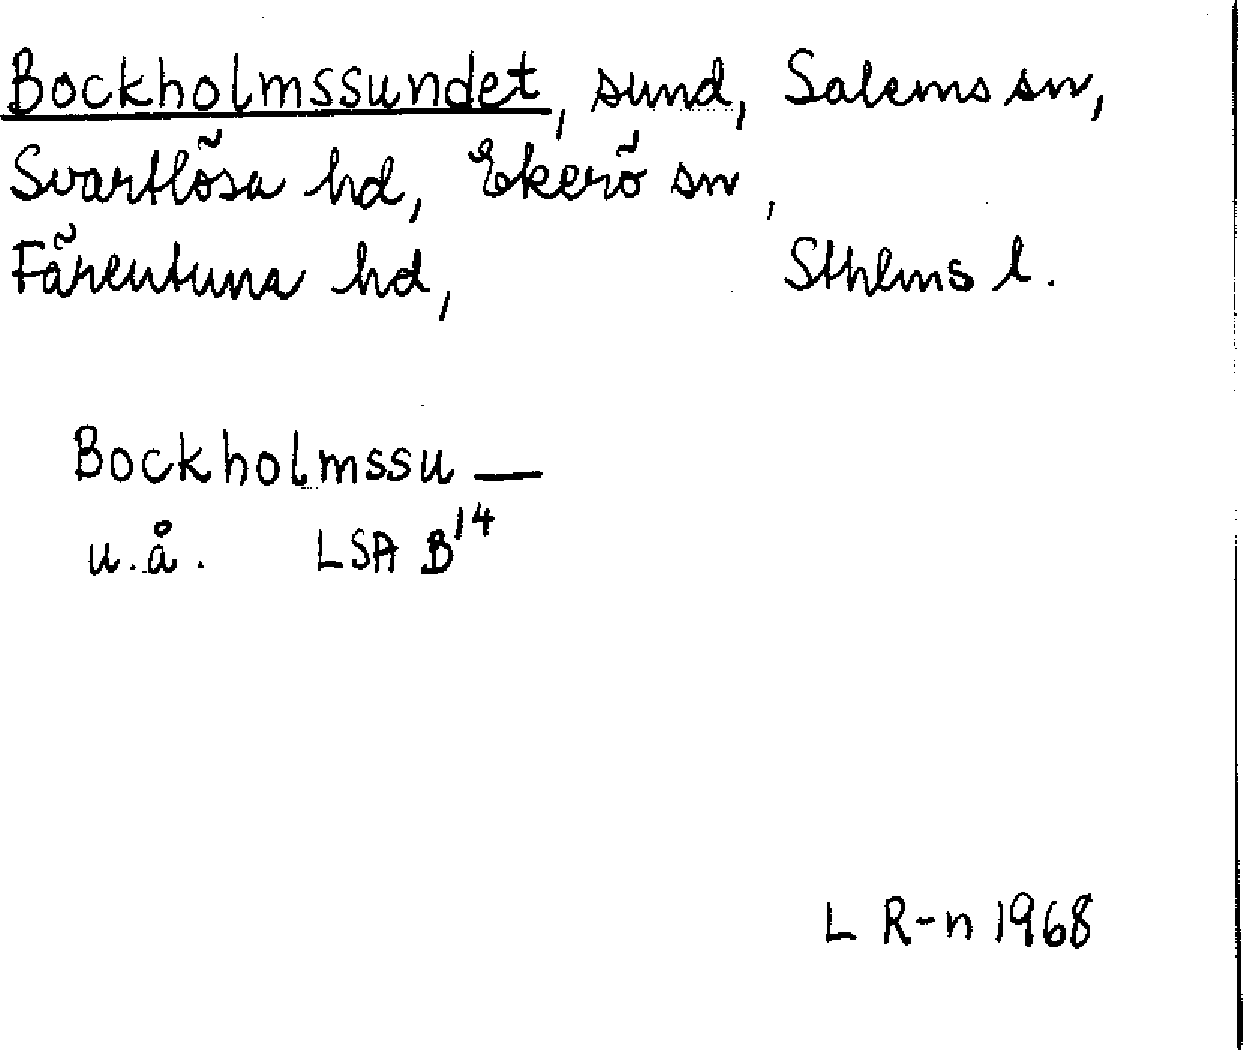 Bockholmssundet, sund, Salems sn,
Svartlösa hd, Ekerö sn,
Färentuna hd, Sthlms l.
Bockholmssu —
u.å. LSA B14
L R-n 1968